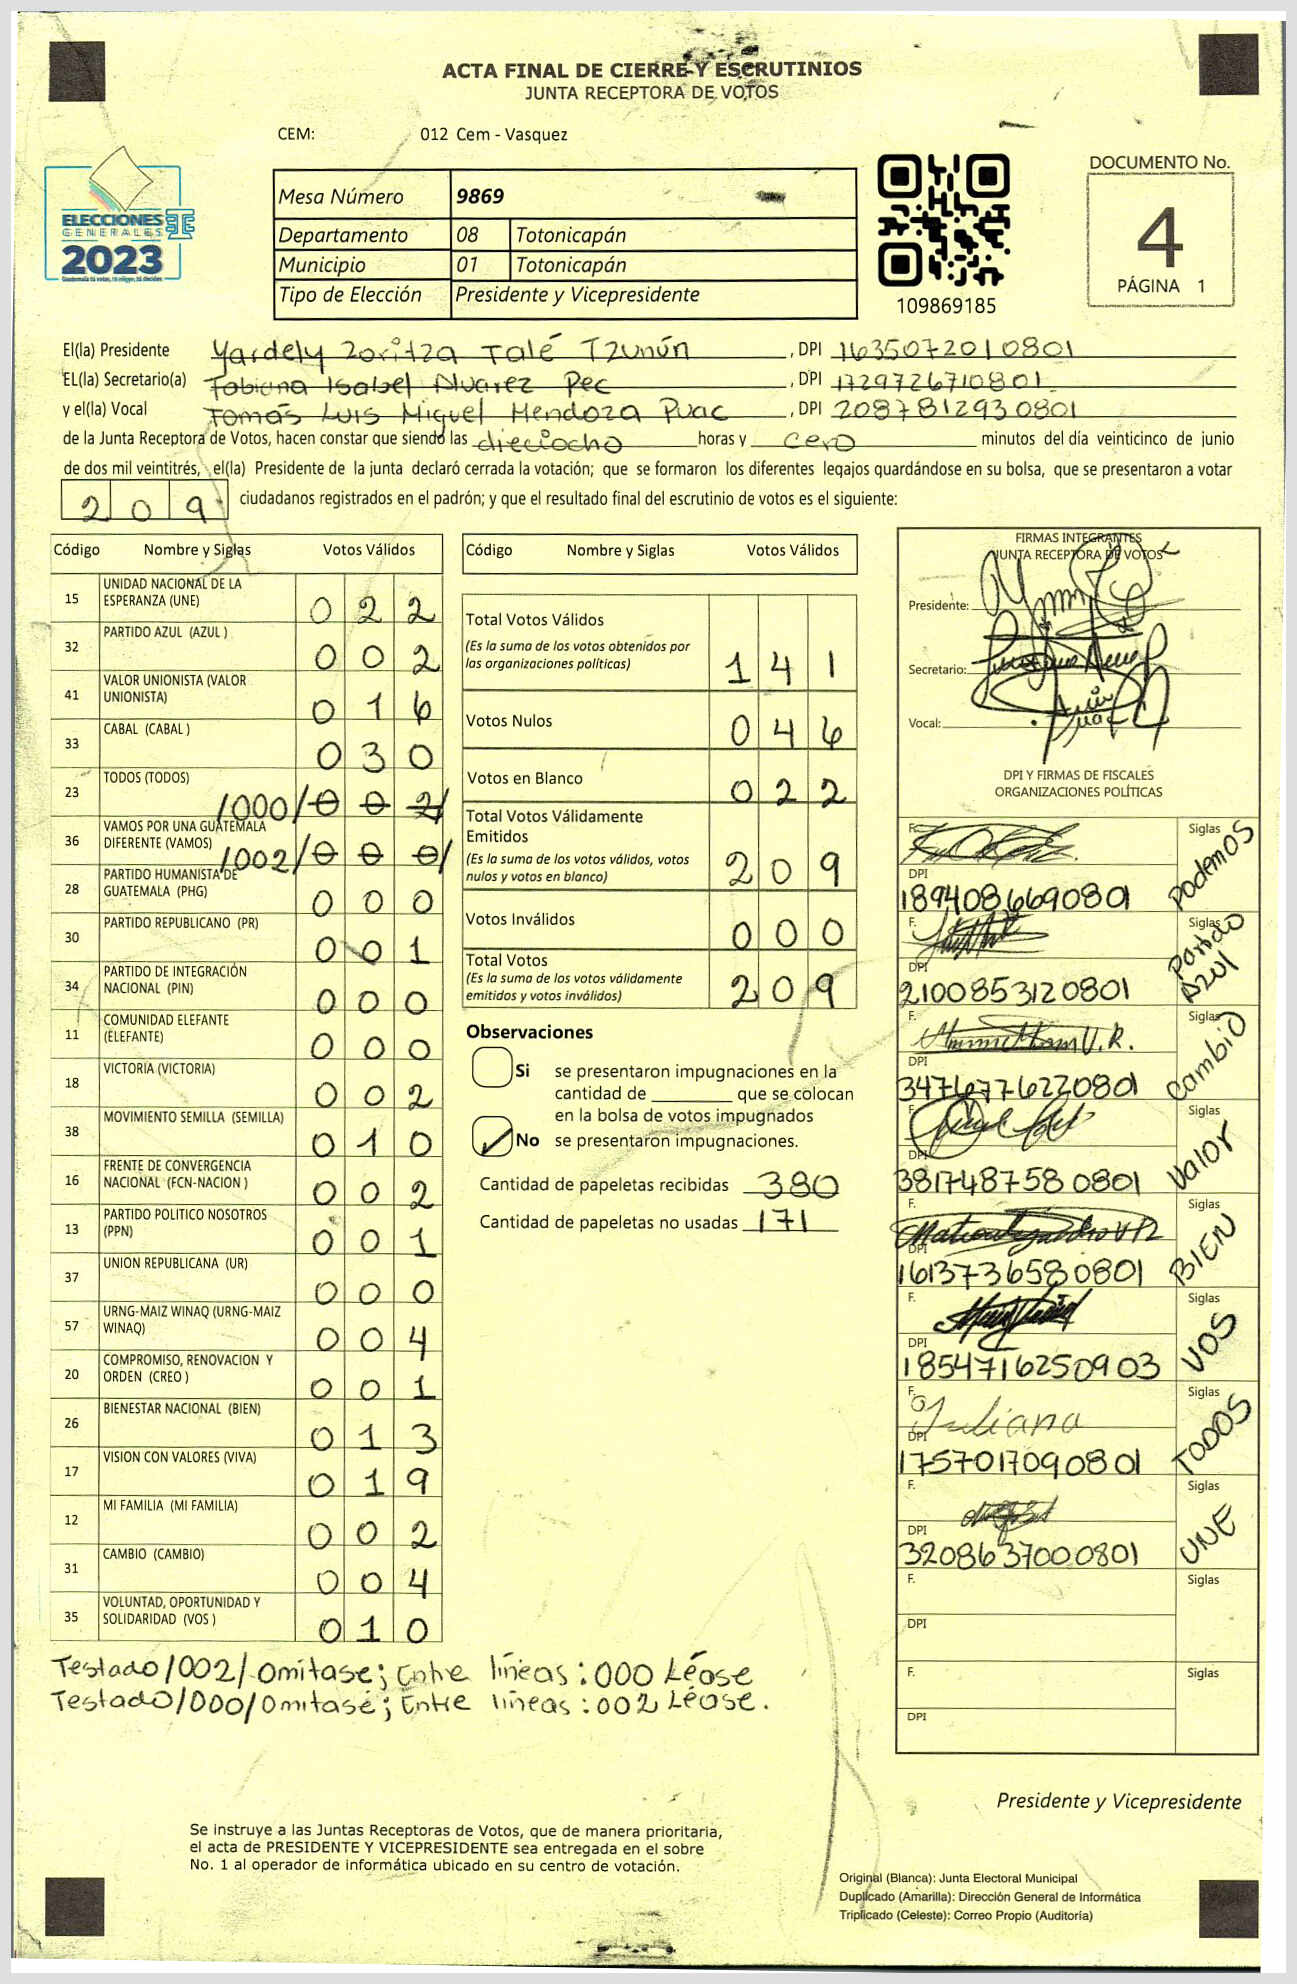 ACTA FINAL DE CIERRE Y ESCRUTINIOS
JUNTA RECEPTORA DE VOTOS
CEM: 012 Cem - Vasquez
ELECCIONES
GENERALES
2023
Mesa Número 9869
Departamento 08 Totonicapán
Municipio 01 Totonicapán
Tipo de Elección Presidente y Vicepresidente
109869185
DOCUMENTO No.
4
PÁGINA 1
El(la) Presidente Yardely Zoritza Talé Tzunún , DPI 1635072010801
EL(la) Secretario(a) Fabiana Isabel Alvarez Pec , DPI 1729726710801
y el(la) Vocal Tomás Luis Miguel Mendoza Puac , DPI 2087812930801
de la Junta Receptora de Votos, hacen constar que siendo las dieciocho horas y cero minutos del día veinticinco de junio
de dos mil veintitrés, el(la) Presidente de la junta declaró cerrada la votación; que se formaron los diferentes legajos guardándose en su bolsa, que se presentaron a votar
209 ciudadanos registrados en el padrón; y que el resultado final del escrutinio de votos es el siguiente:
Código Nombre y Siglas Votos Válidos
15 UNIDAD NACIONAL DE LA ESPERANZA (UNE) 022
32 PARTIDO AZUL (AZUL ) 002
41 VALOR UNIONISTA (VALOR UNIONISTA) 016
33 CABAL (CABAL ) 030
23 TODOS (TODOS) /000/002/
36 VAMOS POR UNA GUATEMALA DIFERENTE (VAMOS) /002/000/
28 PARTIDO HUMANISTA DE GUATEMALA (PHG) 000
30 PARTIDO REPUBLICANO (PR) 001
34 PARTIDO DE INTEGRACIÓN NACIONAL (PIN) 000
11 COMUNIDAD ELEFANTE (ELEFANTE) 000
18 VICTORIA (VICTORIA) 002
38 MOVIMIENTO SEMILLA (SEMILLA) 010
16 FRENTE DE CONVERGENCIA NACIONAL (FCN-NACION ) 002
13 PARTIDO POLITICO NOSOTROS (PPN) 001
37 UNION REPUBLICANA (UR) 000
57 URNG-MAIZ WINAQ (URNG-MAIZ WINAQ) 004
20 COMPROMISO, RENOVACION Y ORDEN (CREO ) 001
26 BIENESTAR NACIONAL (BIEN) 013
17 VISION CON VALORES (VIVA) 019
12 MI FAMILIA (MI FAMILIA) 002
31 CAMBIO (CAMBIO) 004
35 VOLUNTAD, OPORTUNIDAD Y SOLIDARIDAD (VOS ) 010
Testado/002/Omitase; Entre líneas:000 Léase
Testado/000/Omitase; Entre líneas:002 Léase.
Código Nombre y Siglas Votos Válidos
Total Votos Válidos 141
(Es la suma de los votos obtenidos por
las organizaciones políticas)
Votos Nulos 046
Votos en Blanco 022
Total Votos Válidamente
Emitidos 209
(Es la suma de los votos válidos, votos
nulos y votos en blanco)
Votos Inválidos 000
Total Votos 209
(Es la suma de los votos válidamente
emitidos y votos inválidos)
Observaciones
Si se presentaron impugnaciones en la
cantidad de ________ que se colocan
en la bolsa de votos impugnados
No se presentaron impugnaciones.
Cantidad de papeletas recibidas 380
Cantidad de papeletas no usadas 171
FIRMAS INTEGRANTES
JUNTA RECEPTORA DE VOTOS
Presidente:
Secretario:
Vocal:
DPI Y FIRMAS DE FISCALES
ORGANIZACIONES POLÍTICAS
F. Siglas Podemos
DPI 1894086690801
F. Siglas Partido Azul
DPI 2100853120801
F. Siglas Cambio
DPI 3476776220801
F. Siglas Valor
DPI 3817487580801
F. Siglas BIEN
DPI 1613736580801
F. Siglas VOS
DPI 1854716250903
F. Juliana Siglas TODOS
DPI 1757017090801
F. Siglas UNE
DPI 3208637000801
F. Siglas
DPI
F. Siglas
DPI
Presidente y Vicepresidente
Se instruye a las Juntas Receptoras de Votos, que de manera prioritaria,
el acta de PRESIDENTE Y VICEPRESIDENTE sea entregada en el sobre
No. 1 al operador de informática ubicado en su centro de votación.
Original (Blanca): Junta Electoral Municipal
Duplicado (Amarilla): Dirección General de Informática
Triplicado (Celeste): Correo Propio (Auditoría)